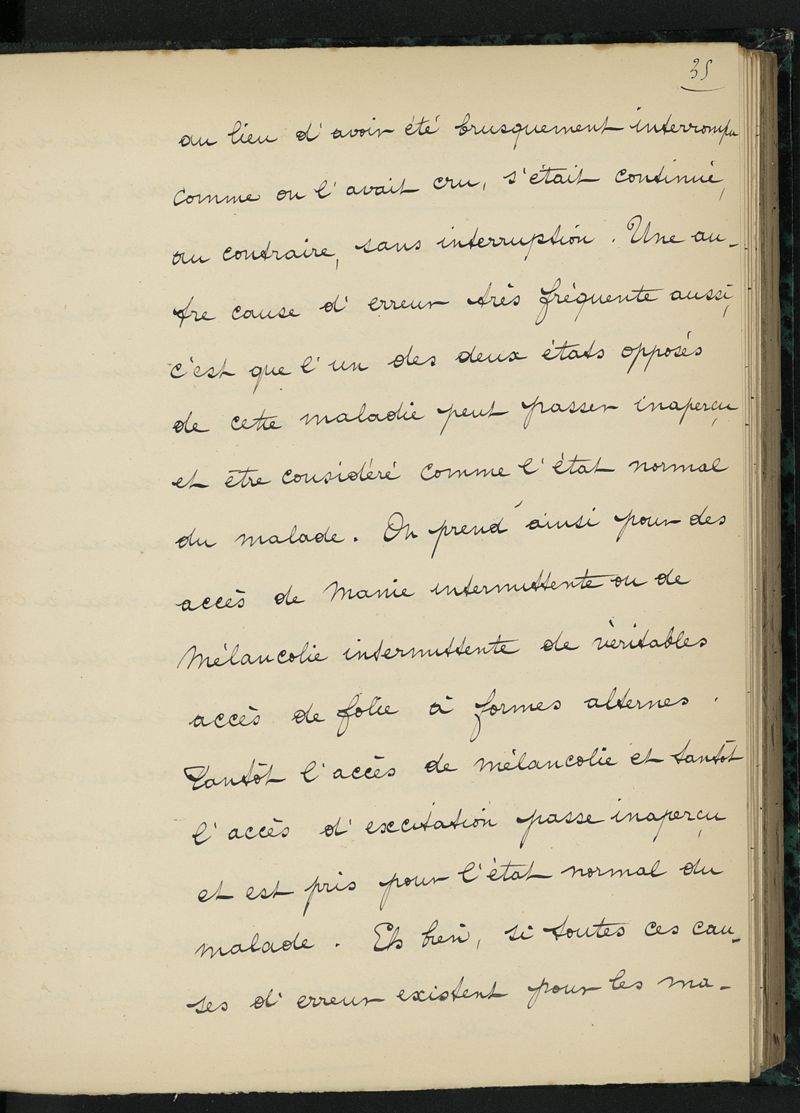 35
au lieu d'avoir été brusquement interrompu
comme on l'avait cru, s'était continué,
au contraire, sans interruption. Une au-
tre cause d'erreur très fréquente aussi,
c'est que l'un des deux états opposés
de cette maladie peut passer inaperçu
et être considéré comme l'état normal
du malade. On prend ainsi pour des
accès de Manie intermittente ou de
Mélancolie intermittente de véritables
accès de folie à formes alternes.
Tantôt l'accès de mélancolie et tantôt
l'accès d'excitation passe inaperçu
et est pris pour l'état normal du
malade. Eh bien, si toutes ces cau-
ses d'erreur existent pour les ma-